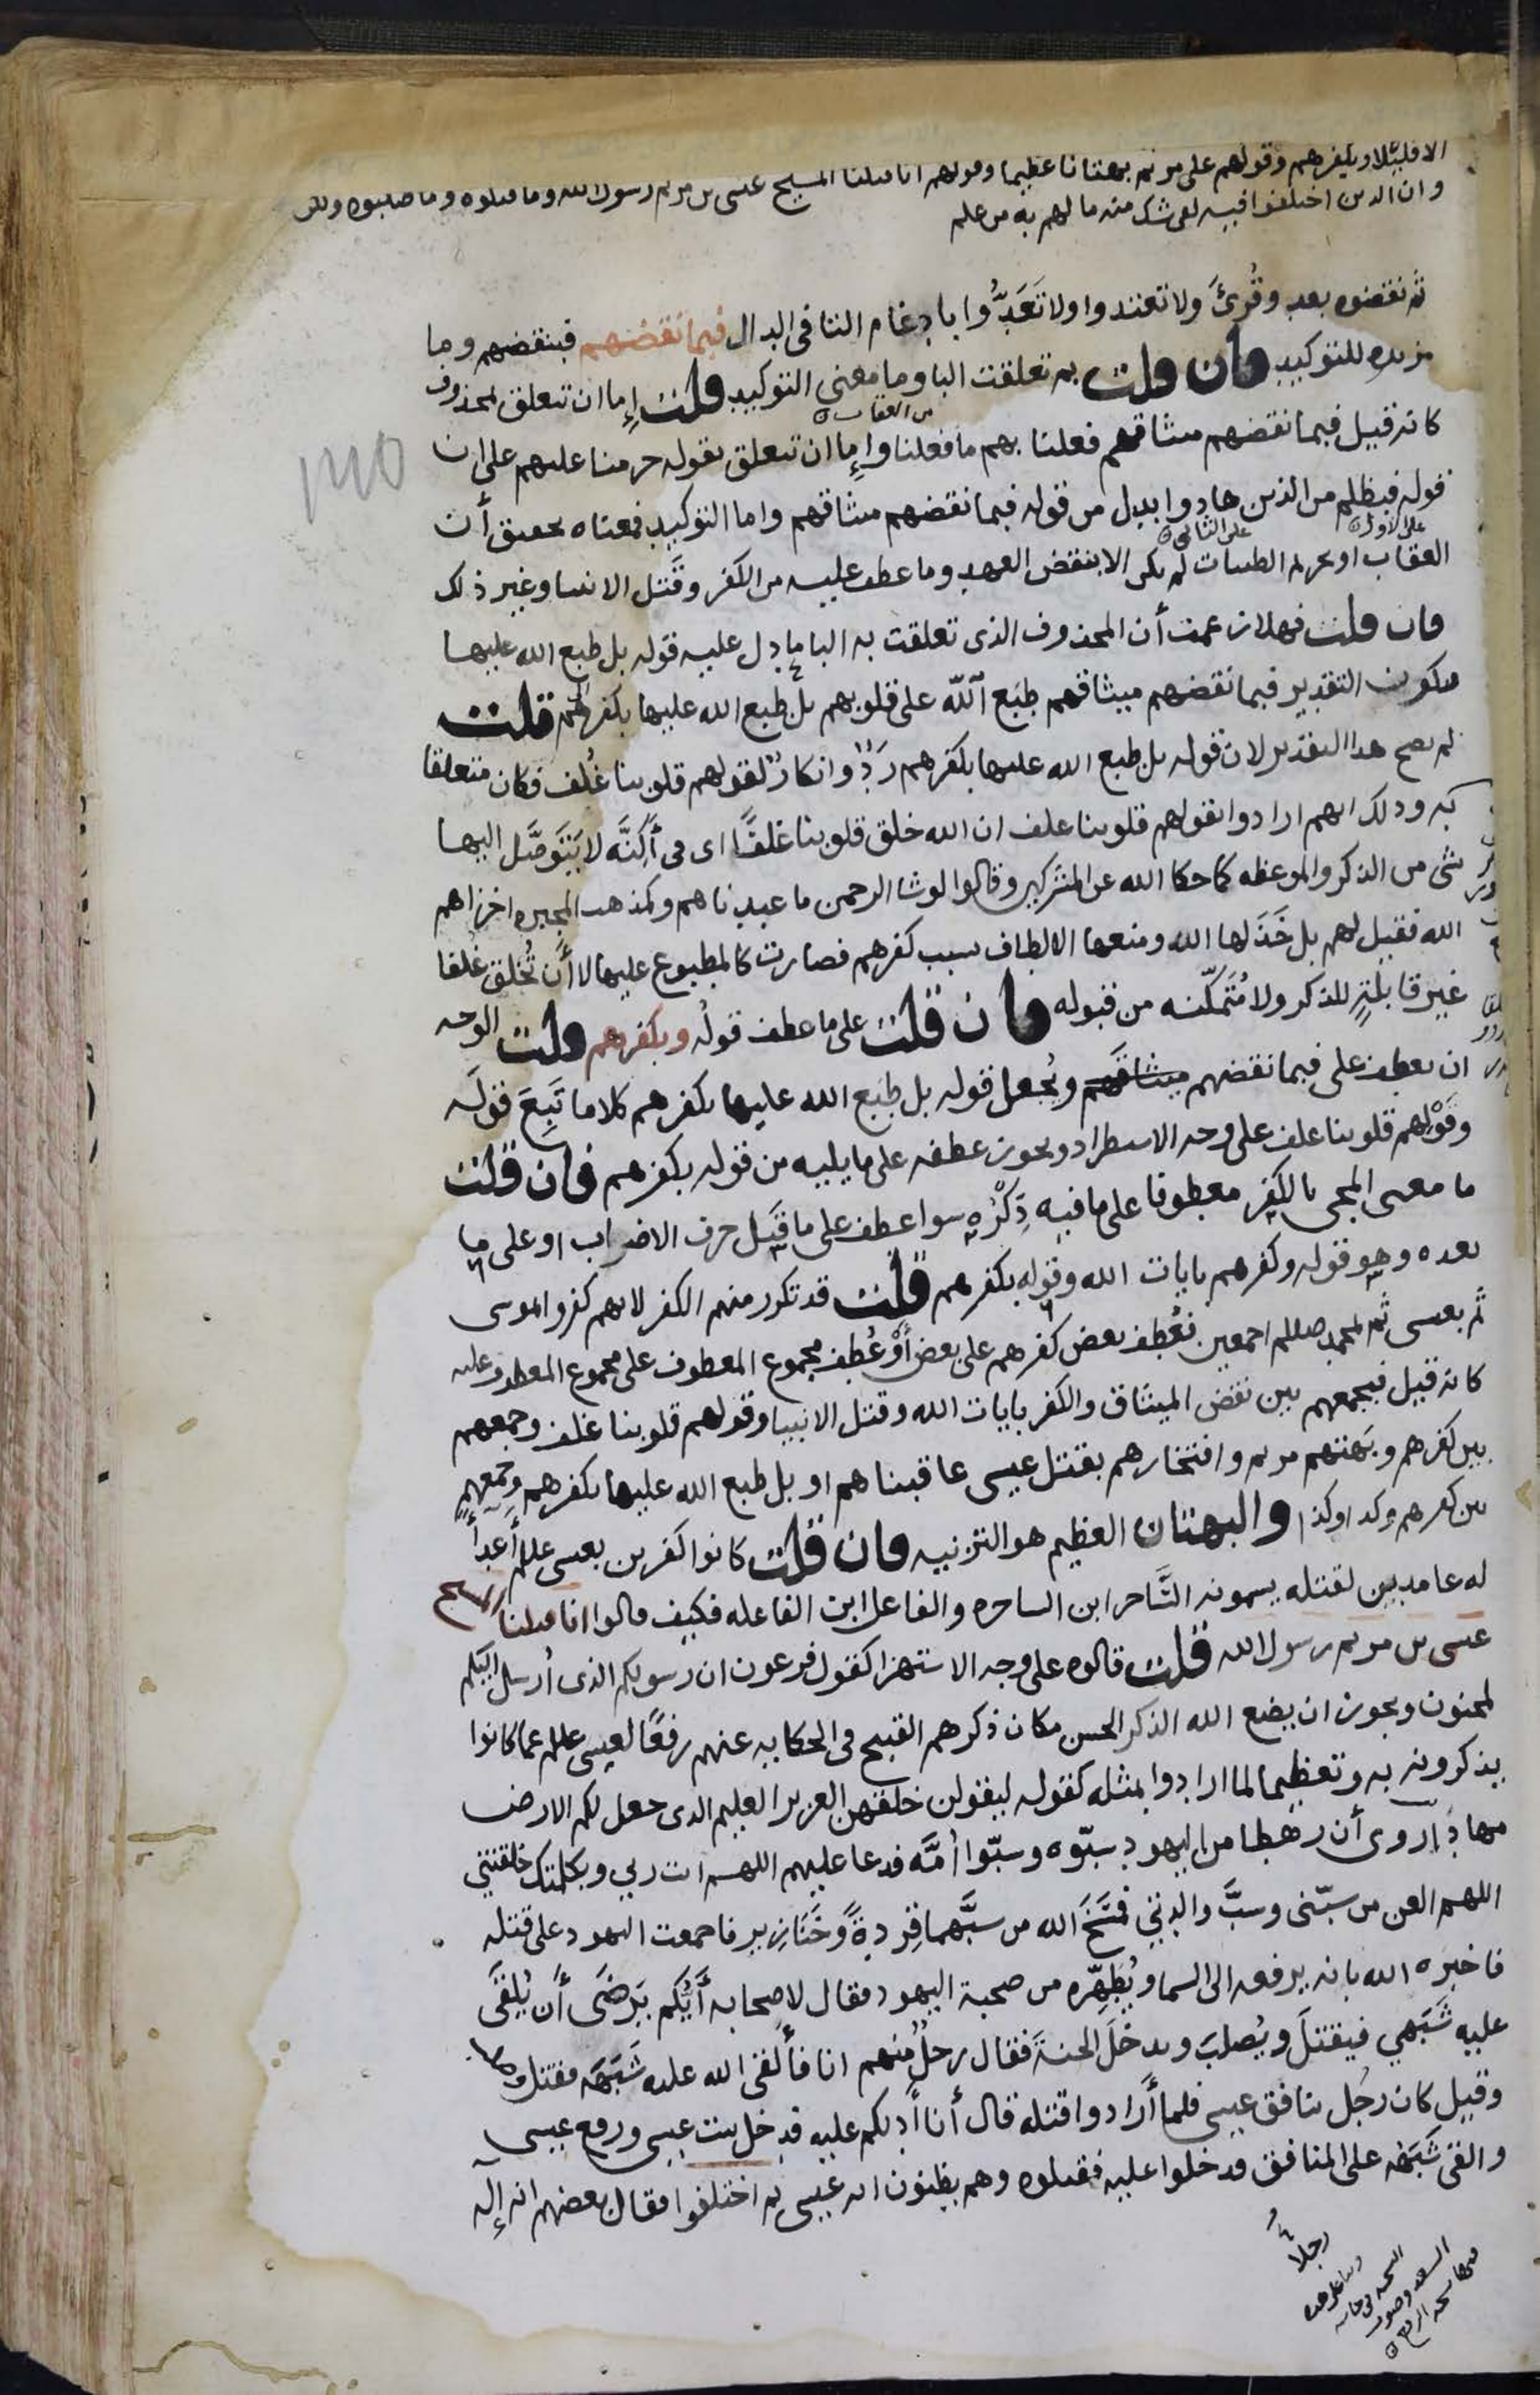 الا قليلا وبكفرهم وقولهم على مريم بهتانا عظيما وقولهم انا قتلنا المسيح عيسى بن مريم رسول الله وما قتلوه وما صلبوه ولكن
وان الذين اختلفوا فيه لفى شك منه ما لهم به من علم
ثم نقضوه بعد وقُرئَ ولا تعتدوا ولا تَعَدُّوا بادغام التا فى الدال فبما نقضهم فبنقضهم وما
مزيده للتوكيد فان قلت بم تعلقت البا وما معنى التوكيد قلت إما ان تتعلق بمحذوف
من العقاب
كانه قيل فبما نقضهم ميثاقهم فعلنا بهم ما فعلنا وإما ان تتعلق بقوله حرمنا عليهم على ان
قوله فبظلم من الذين هادوا بدل من قوله فبما نقضهم ميثاقهم واما التوكيد فمعناه تحقيق أن
على الاول على الثانى
العقاب او تحريم الطيبات لم يكن الا بنقض العهد وما عطف عليه من الكفر وقَتل الانبيا وغير ذلك
فان قلت فهلا زعمت أن المحذوف الذى تعلقت به البا ما دل عليه قوله بل طبع الله عليها
فيكون التقدير فبما نقضهم ميثاقهم طبَع الله على قلوبهم بل طبع الله عليها بكفرهم قلت
لم يصح هذا التقدير لان قوله بل طبع الله عليها بكفرهم ردٌّ وانكارٌ لقولهم قلوبنا غُلف فكان متعلقا
به وذلك انهم ارادوا بقولهم قلوبنا غلف ان الله خلق قلوبنا غلفًا اى فى أكِنَّه لا يَتَوصَّل اليها
شى من الذكر والموعظه كما حكا الله عن المشركين وقالوا لو شا الرحمن ما عبدناهم وكمذهب المجبره اخزاهم
الله فقيل لهم بل خَذَلها الله ومنعها الالطاف بسبب كفرهم فصارت كالمطبوع عليها لا أن تُخلق غُلفا
غير قابلةٍ للذكر ولا مُتَمكّنه من قبوله فان قلت على ما عطف قولُه وبكفرهم قلت الوجه
ان يعطف على فبما نقضهم ميثاقهم ويُجعل قوله بل طبَع الله عليها بكفرهم كلاما تَبِعَ قولَه
وقَوْلهم قلوبنا غلف على وجه الاستطراد ويجوز عطفه على ما يليه من قوله بكفرهم فان قلت
ما معنى المجى بالكفر معطوفا على ما فيه ذِكْرُه سوا عطف على ما قبل حرف الاضراب او على ما
بعده وهو قوله وكفرهم بايات الله وقوله بكفرهم قلت قد تكرر منهم الكفر لانهم كفروا بموسى
ثم بعيسى ثم بمحمد صللم اجمعين فعُطف بعض كفرهم على بعض أَوْ عُطف مجموع المعطوف على مجموع المعطوف عليه
كانه قيل فبجمعهم بين نقض الميثاق والكفر بايات الله وقتل الانبيا وقولهم قلوبنا غلف وجمعهم
بين كفرهم وبَهتهم مريم وافتخارهم بقتل عيسى عاقبناهم او بل طبع الله عليها بكفرهم وجمعهم
بين كفرهم وكذا وكذا والبهتان العظيم هو التزنيه فان قلت كانوا كفرين بعيسى عللم أعدأ
له عامدين لقتله يسمونه السَّاحر ابن الساحره والفاعل ابن الفاعله فكيف قالوا انا قتلنا المسيح
عيسى بن مريم رسول الله قلت قالوه على وجه الاستهزا كقول فرعون ان رسولكم الذى أرسل اليكم
لمجنون ويجوز ان يضع الله الذكر الحسن مكان ذكرهم القبيح فى الحكايه عنهم رفعًا لعيسى عللم عما كانوا
يذكرونه به وتعظيما لما ارادوا بمثله كقوله ليقولن خلقهن العزيز العليم الذى جعل لكم الارض
مهادًا روى أن رهطا من اليهود سبّوه وسبّوا أمَّه فدعا عليهم اللهم انت ربي وبكلمتك خلقتني
اللهم العن من سبّنى وسبَّ والدتي فمَسَخَ الله من سبَّهما قِردةً وخَنَازير فاجمعت اليهود على قتله
فاخبره الله بانه يرفعه الى السما ويُطهّره من صحبة اليهود فقال لاصحابه أيُّكم يَرضَى أن يُلقَى
عليه شَبَهي فيقتلَ ويُصلبَ ويدخلَ الجنةَ فقال رجلٌ منهم انا فألقى الله عليه شَبَهَه فقتل وصلب
وقيل كان رجُل ينافق عيسى فلما أرادوا قتله قال أنا أدلكم عليه فدخل بيت عيسى ورفع عيسى
والقى شَبَهُه على المنافق فدخلوا عليه فقتلوه وهم يظنون انه عيسى ثم اختلفوا فقال بعضهم انه إله
رجلا